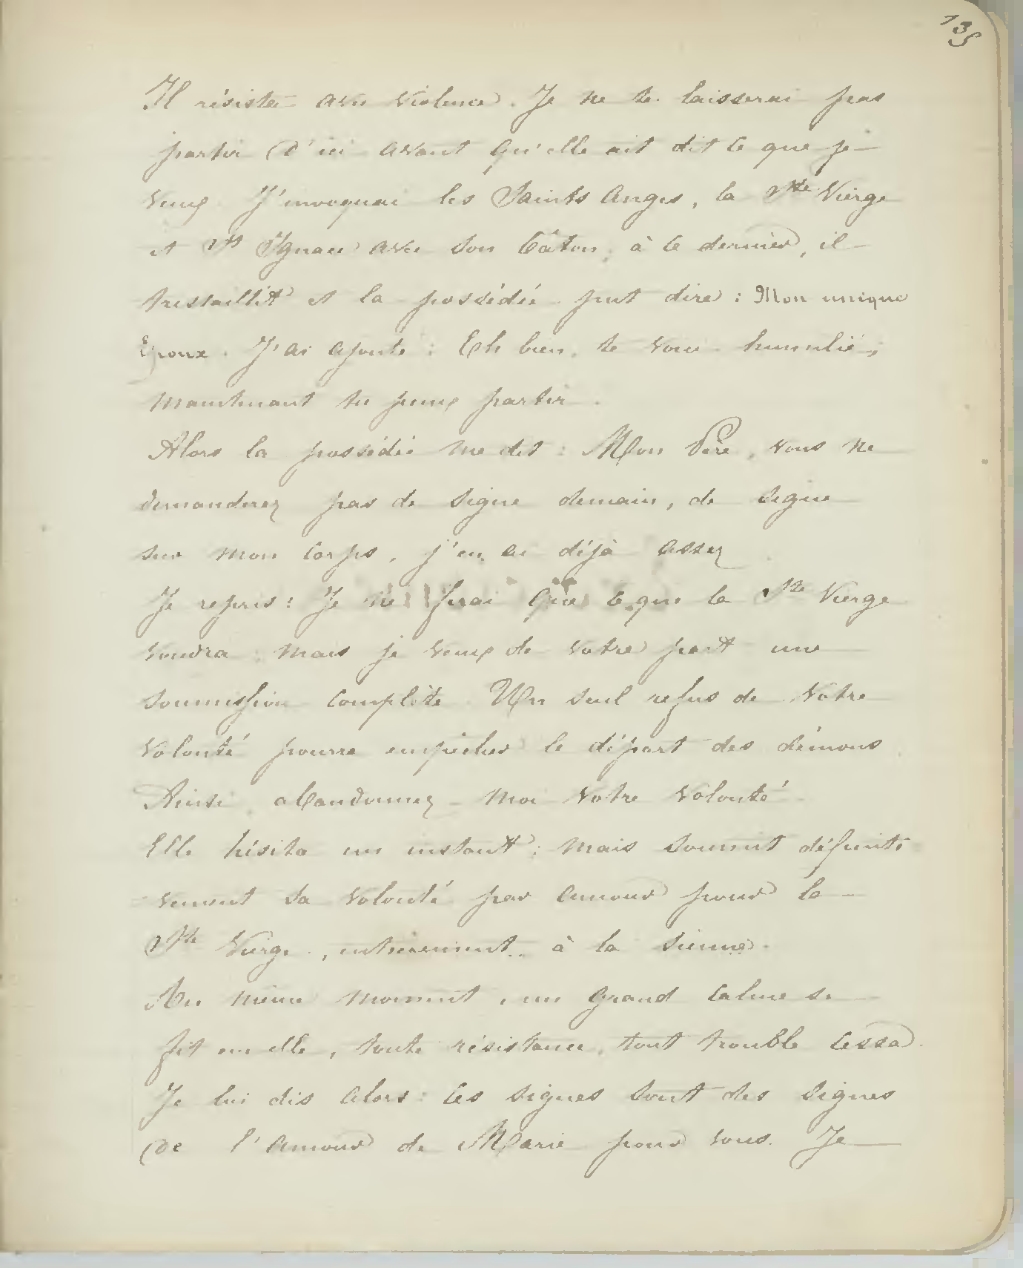 135
Il résista avec violence. Je ne te laisserai pas
partir d'ici avant qu'elle ait dit ce que je
veux. J'invoquai les Saints Anges, la Ste Vierge
et St Ignace avec son bâton, à ce dernier, il
tressaillit et la possédée put dire : Mon unique
Epoux. J'ai ajouté : Eh bien, te voici humilié,
maintenant tu peux partir.
Alors la possédée me dit : Mon Père, vous ne
demanderez pas de signe demain, de signe
sur mon corps, j'en ai déjà assez
Je repris : Je ne ferai que ce que la Ste Vierge
voudra ; mais je veux de votre part une
soumission complète. Un seul refus de votre
volonté pourra empêcher le départ des démons.
Ainsi abandonnez-moi votre volonté.
Elle hésita un instant ; mais soumit définiti
vement sa volonté par amour pour la
Ste Vierge, entièrement à la sienne.
Au même moment, un grand calme se
fit en elle, toute résistance, tout trouble cessa.
Je lui dis alors : Ces signes sont des signes
de l'amour de Marie pour vous. Je